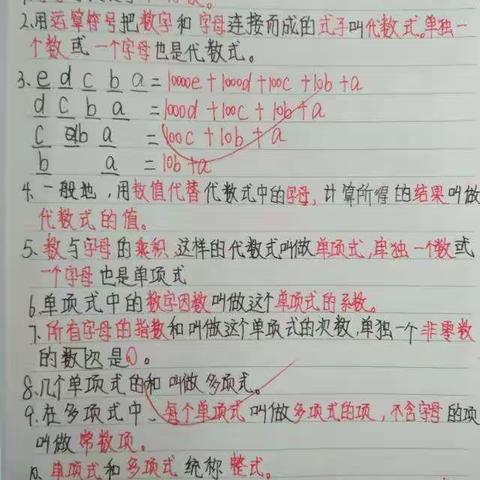 2.用运算符号把数字和字母连接而成的式子叫代数式。单独一
个数或一个字母也是代数式。
3. e d c b a = 10000e+1000d+100c+10b+a
d c b a = 1000d+100c+10b+a
c b a = 100c+10b+a
b a = 10b+a
4. 一般地,用数值代替代数式中的字母,计算所得的结果叫做
代数式的值。
5、数与字母的乘积,这样的代数式叫做单项式,单独一个数或
一个字母也是单项式
6.单项式中的数字因数叫做这个单项式的系数。
7、所有字母的指数和叫做这个单项式的次数,单独一个非零数
的数次是0。
8.几个单项式的和叫做多项式。
9.在多项式中、每个单项式叫做多项式的项,不含字母的项
叫做常数项。
单项式和多项式统称整式。